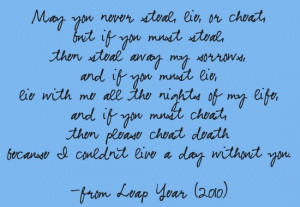 May you never steal, lie, or cheat,
but if you must steal,
then steal away my sorrows,
and if you must lie,
lie with me all the nights of my life,
and if you must cheat,
then please cheat death
because I couldn't live a day without you.
-from Leap Year (2010)